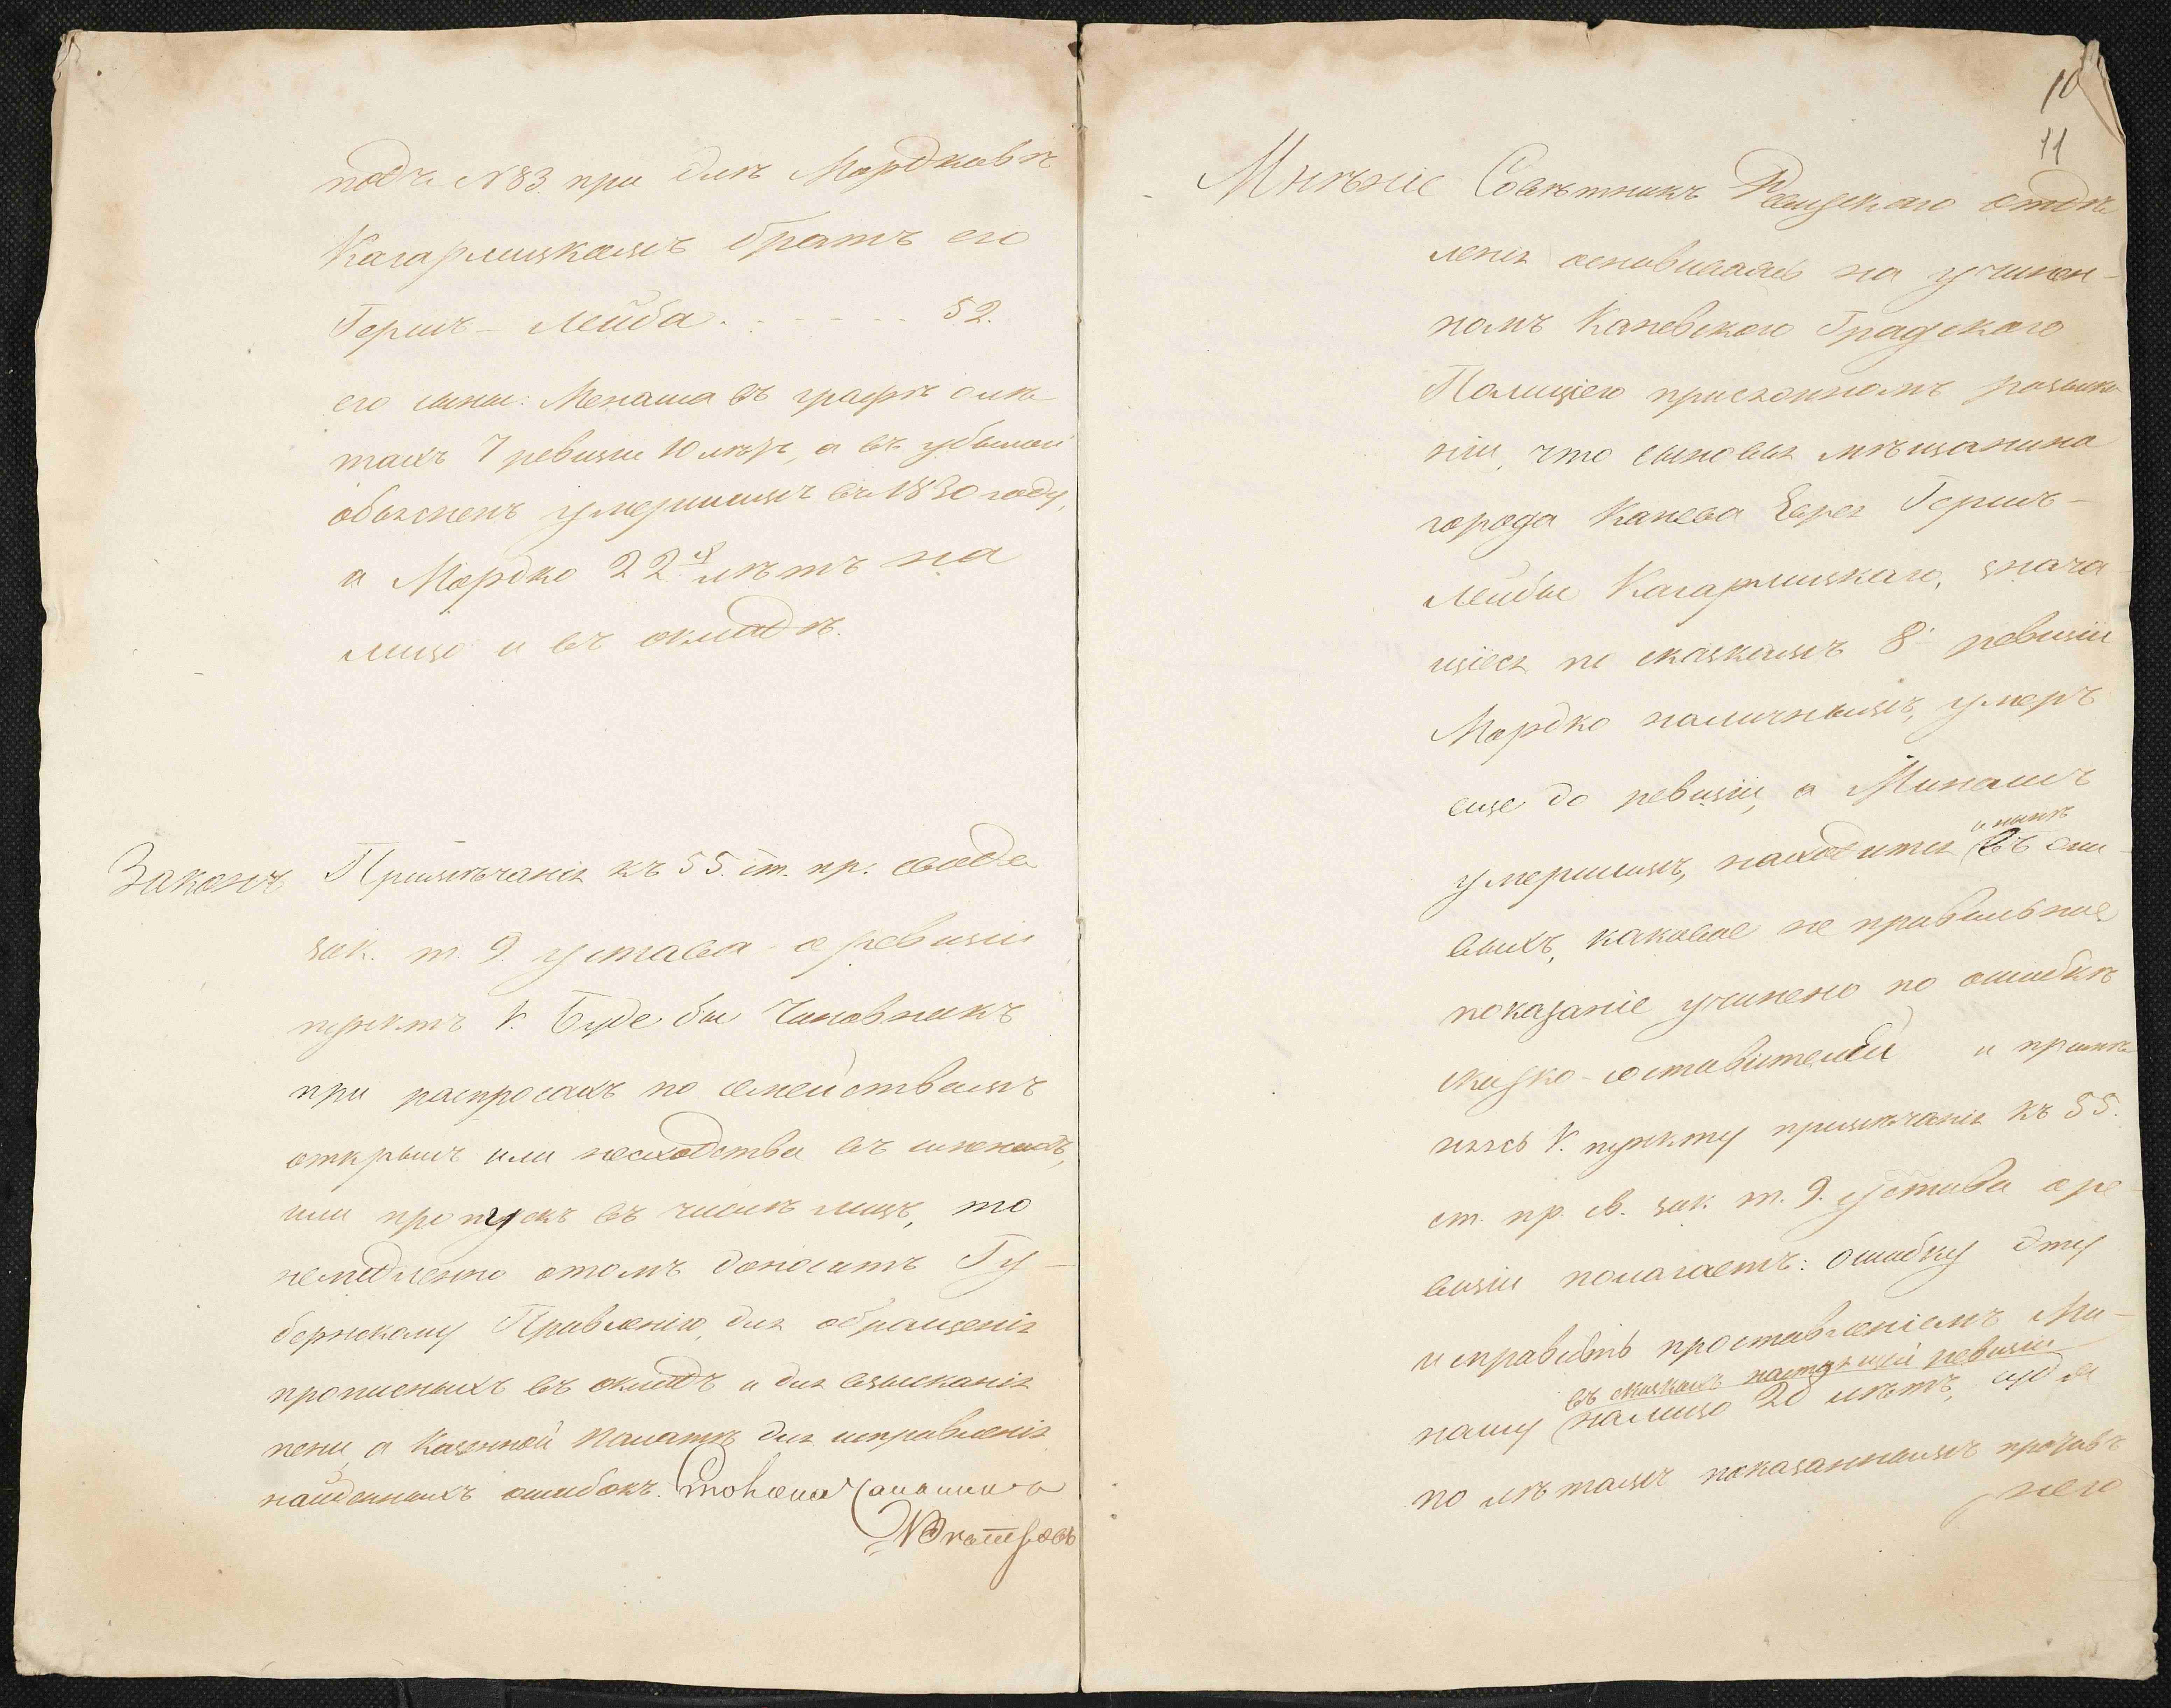 подъ №83. при дмъ Мордковъ
Кагарлицкомъ братъ его
Гершъ-Лейба . - - - - - - 52.
его сыны: Менаша въ графѣ о лѣ
тахъ 7 ревизіи 10 лѣтъ, а въ убылой
объясненъ умершимъ въ 1830 году,
а Мордко 22 ½ лѣтъ на
лицо и въ окладѣ.
Законъ Примѣчанія къ 55. ст. пр: свода
зак. т. 9. устава о ревизіи
пунктъ V. Буде бы Чиновникъ
при распросахъ по семействамъ
открылъ или несходства въ именахъ,
или пропускъ въ числѣ лицъ, то
немедленно отомъ доноситъ Гу-
бернскому Правленію, для обращенія
прописныхъ въ окладъ и для взысканія
пени, а Казенной Палатѣ для исправленія
найденныхъ ошибокъ.
10
11
Мнѣніе Совѣтникъ Ревизскаго отдѣ
ленія основываясь на учинен-
номъ Каневскою Градскою
Полиціею присяжномъ розыска
ніи, что сыновья мѣщанина
города Канева Еврея Гершъ-
Лейбы Кагарлицкаго, знача
щіеся по сказкамъ 8й ревизіи
Мордко наличнымъ, умеръ
еще до ревизіи, а Минашъ
и нынѣ
умершимъ, находится въ жи-
выхъ, каковое не правильное
показаніе учинено по ошибкѣ
сказко-составителей и примѣ
няясь V. пункту примѣчанія къ 55.
ст. пр. св. зак. т. 9. устава о ре
визіи полагаетъ: ошибку эту
исправить проставленіемъ Ми-
въ сказкахъ настоящей ревизіи
нашу налицо 20 лѣтъ, судя
по лѣтамъ показаннымъ противъ
него